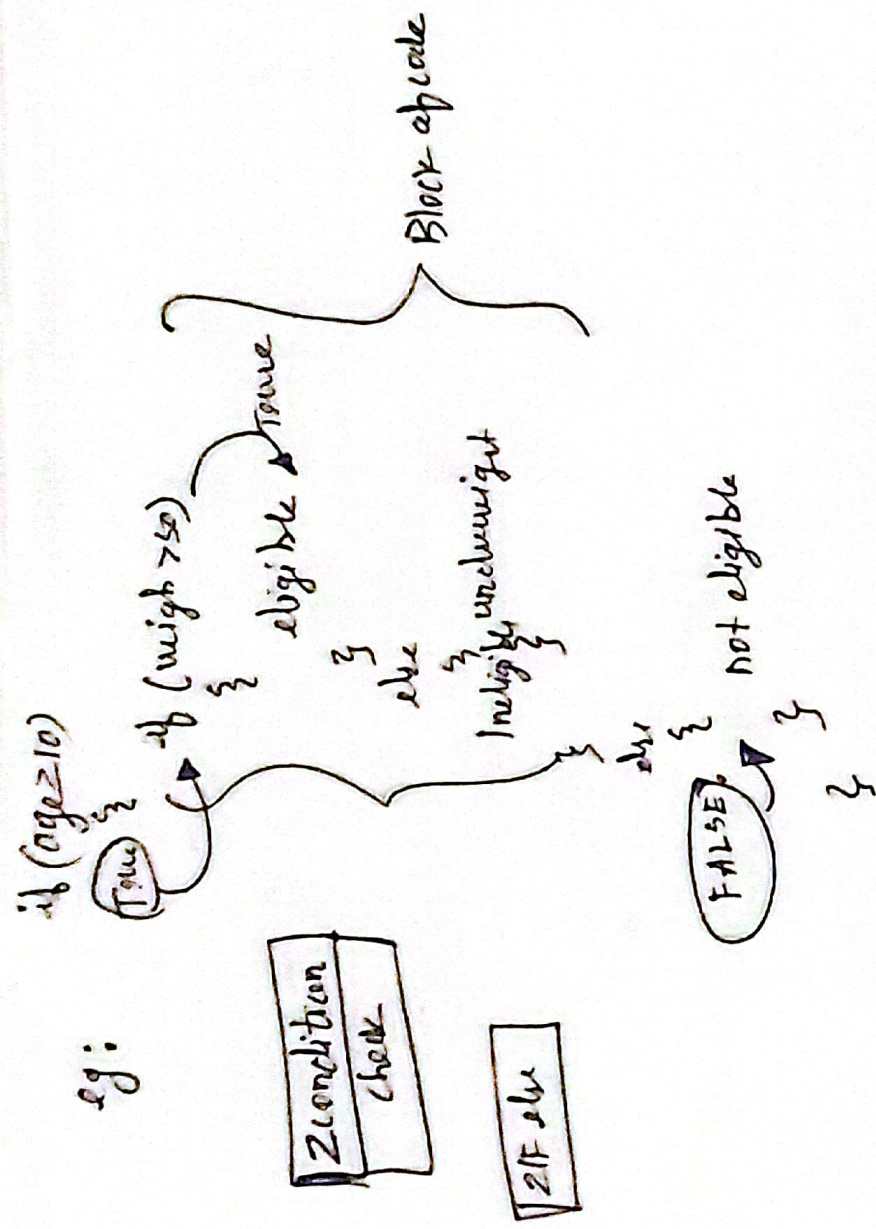 eg:
if (age ≥ 10)
{
True
if (weigh > 50)
{
eligible
True
}
else
{
Ineligible underweight
}
}
else
{
FALSE
not eligible
}
}
Block of code
2 condition
check
2 IF else